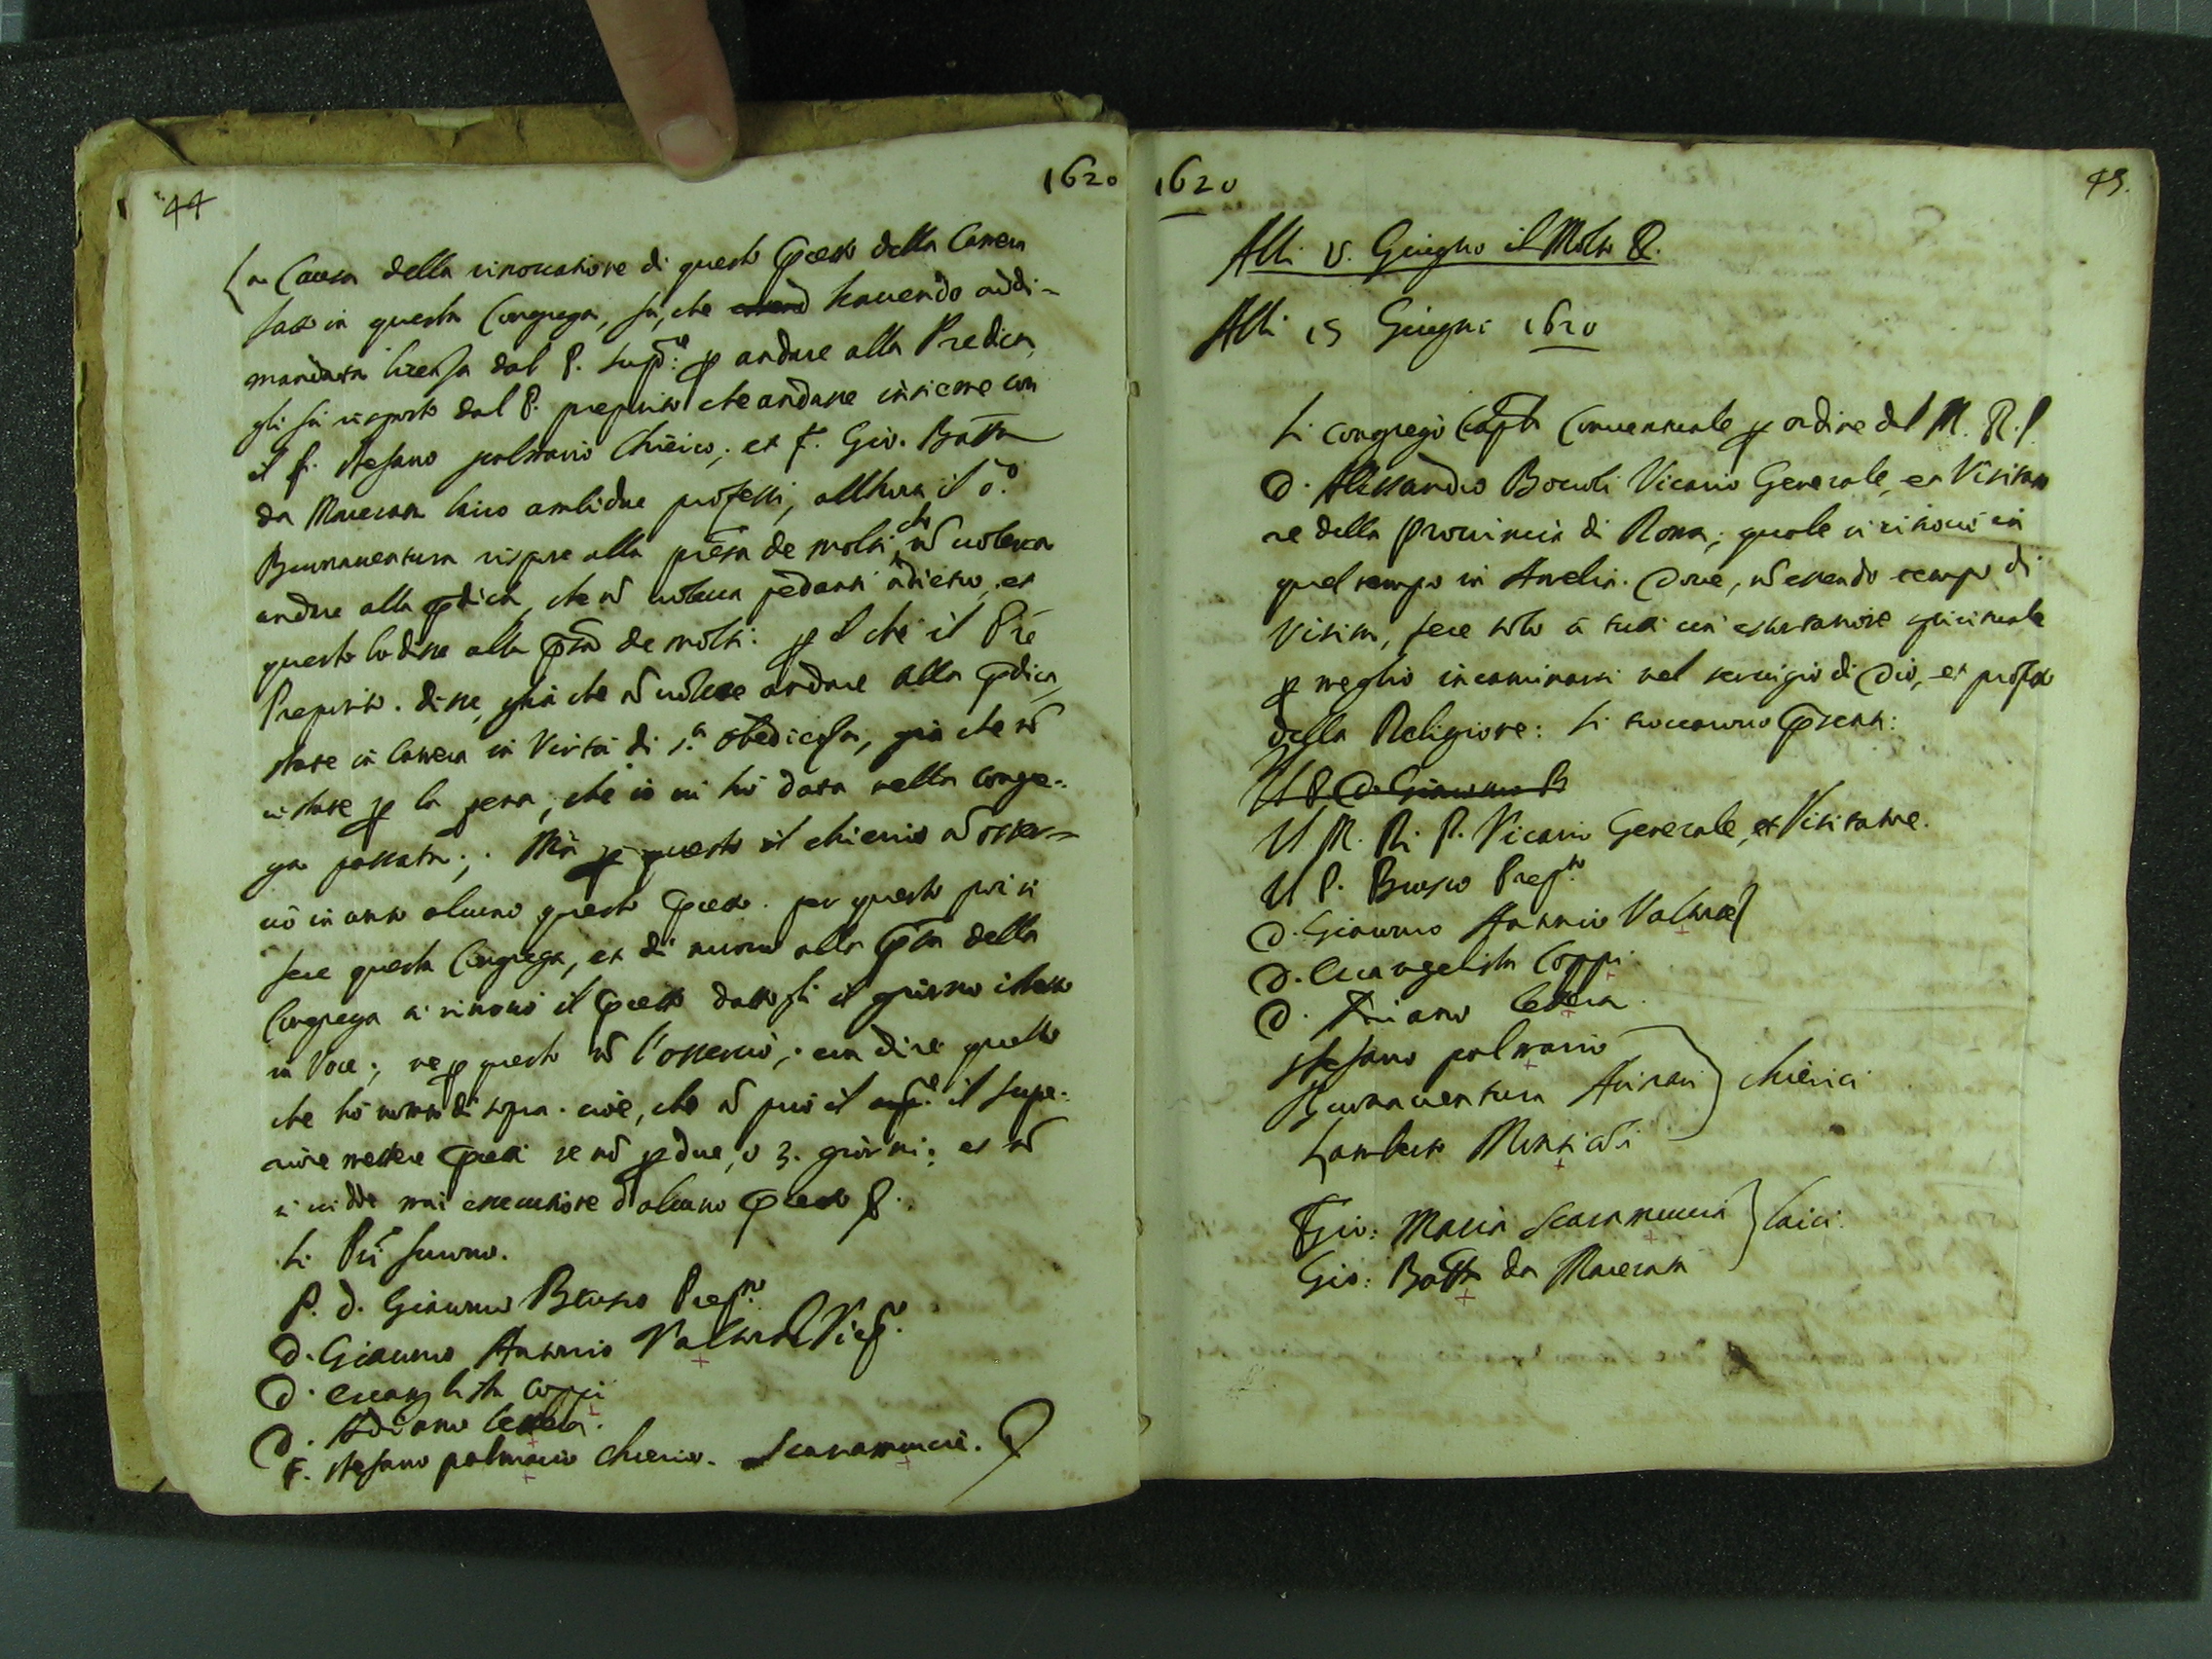 44
1620
La Causa della rinouatione di questo ꝑcetto della Camera
fatto in questa Congrega, fù, che hauendo addi-
mandata licenza dal P. Sup.re ꝑ andare alla Predica,
gli fù risposto dal P. preposito che andasse insieme con
il f. stefano palmario Chierico, et f. Gio. Batta
da Macerata laico ambidue professi, allhora il d.o
Buonauentura rispose alla pñza de molti, che nõ uoleua
andare alla ꝑdica, che nõ uoleua pedanti adietro, et
questo lo disse alla pñza de molti. ꝑ il che il Prẽ
Preposito. disse, già che nõ uolete andare alla ꝑdica,
state in Camera in Virtù di s.ta obedienza, già che nõ
ci state ꝑ la pena, che io ui hò data nella congre-
ga passata; Mà ꝑ questo il chierico nõ osser-
uò in conto alcuno questo ꝑcetto. per questo poi si
fece questa Congrega, et di nuouo alla pñza della
Congrega si rinouò il ꝑcetto dattogli il giorno istesso
in Voce; ne ꝑ questo nõ l'osseruò, con dire quello
che hò notato di sopra. cioè, che nõ può il supe.re il supe-
riore mettere ꝑcetti se nõ ꝑ due, ò 3. giorni; et nõ
si uidde mai essecutione d'alcuno ꝑcetto
Li Pri furono.
P. D. Giacomo Brusco Prep.to
D. Giacomo Antonio Valtrode Vicep.
D. euangelista Coppi
D. Adriano
F. stefano palmario chierico. Scaramuccia.
1620
45.
Alli V. Giugno il Molto R.
Alli 15 Giugni 1620
Si congregò Capto Conuentuale ꝑ ordine del M. R. P.
D. Alessandro Boccoli Vicario Generale, et Visitato
re della prouincia di Roma; quale si ritrouò in
quel tempo in Amelia. Doue, nõ essendo tempo di
Visita, fece solo à tutti una essortatione spirituale
ꝑ meglio incaminarsi nel seruigio di Dio, et profitto
della Religione: Si trouarono ꝑsenti:
Il P. D. Giacomo B
Il M. R. P. Vicario Generale, et Visitatore.
Il P. Brusco Prep.to
D. Giacomo Antonio Valtrode
D. Euangelista Coppi
D. Adriano
Stefano palmario
Buonauentura chierici
Lamberto
Gio: Maria Scaramuccia laici.
Gio: Batta da Macerata